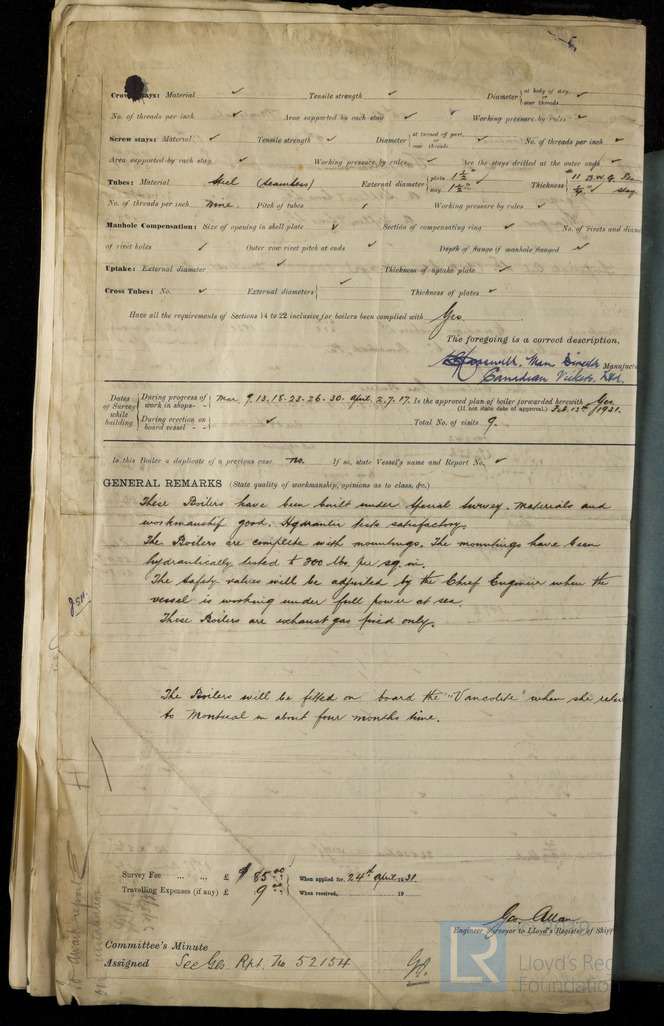 stays: Material ✓ Tensile strength ✓ Diameter { at body of stay, or over threads ✓
No. of threads per inch ✓ Area supported by each stay ✓ Working pressure by rules ✓
Screw stays: Material ✓ Tensile strength ✓ Diameter { at turned off part, or over threads ✓ No. of threads per inch ✓
Area supported by each stay ✓ Working pressure by rules ✓ Are the stays drilled at the outer ends ✓
Tubes: Material Steel (Seamless) External diameter { plain 1½" stay 1½" Thickness { 11 B.W.G. ¼" stay
No. of threads per inch Nine. Pitch of tubes Working pressure by rules ✓
Manhole Compensation: Size of opening in shell plate ✓ Section of compensating ring ✓ No. of rivets and diam
of rivet holes ✓ Outer row rivet pitch at ends ✓ Depth of flange if manhole flanged ✓
Uptake: External diameter ✓ Thickness of uptake plate ✓
Cross Tubes: No. ✓ External diameters { ✓ Thickness of plates ✓
Have all the requirements of Sections 14 to 22 inclusive for boilers been complied with Yes.
The foregoing is a correct description,
Man Director Manufact
Canadian Vickers Ltd.
Dates of Survey while building { During progress of work in shops - - } Mar. 9.13.18.23.26.30. April. 2.7.17. Is the approved plan of boiler forwarded herewith Yes.
(If not state date of approval.) Feb. 13th 1931.
{ During erection on board vessel - - } ✓ Total No. of visits 9.
Is this Boiler a duplicate of a previous case no. If so, state Vessel's name and Report No. ✓
GENERAL REMARKS (State quality of workmanship, opinions as to class, &c.)
These Boilers have been built under Special Survey. Materials and
workmanship good. Hydraulic tests satisfactory.
The Boilers are complete with mountings. The mountings have been
hydraulically tested to 300 lbs. per sq. in.
The Safety valves will be adjusted by the Chief Engineer when the
vessel is working under full power at sea.
These Boilers are exhaust gas fired only.
The Boilers will be fitted on board the "Vancolite" when she retur
to Montreal in about four months time.
Survey Fee ... ... £ $ 85.00 When applied for, 24th April 1931.
Travelling Expenses (if any) £ 9.00 When received, 19
Geo. Allan
Engineer Surveyor to Lloyd's Register of Shipp
Committee's Minute
Assigned See Gls. Rpt. No 52154
LR
Lloyd's Reg
Foundation